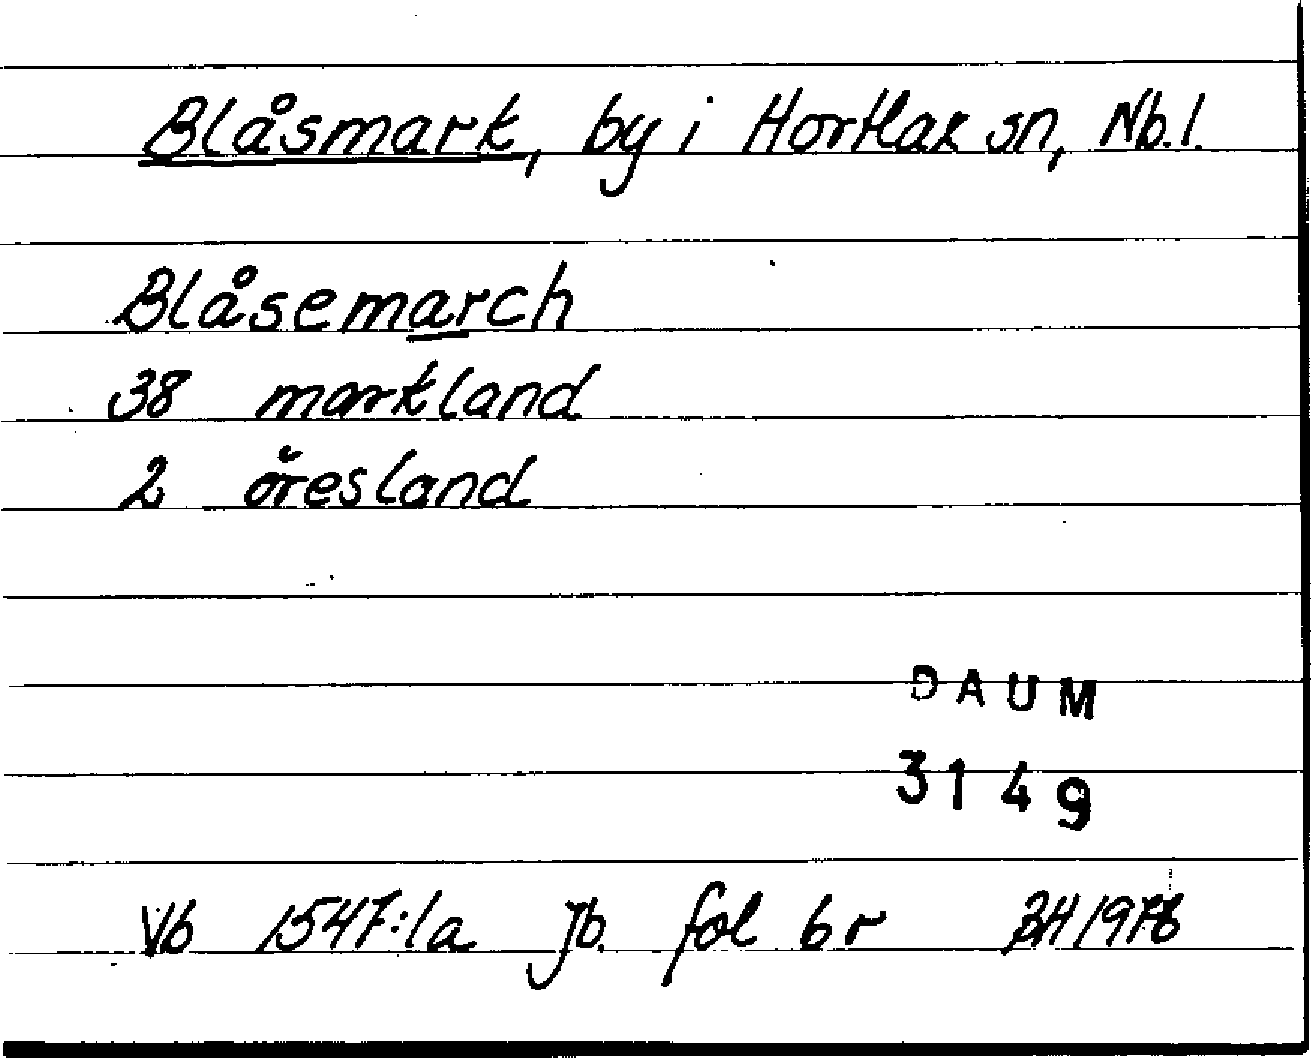 Blåsmark, by i Hortlax sn, Nb.l.
Blåsemarch
38 markland
2 öresland
DAUM
3149
Vb 1547:1a Jb. fol 6r BH 1976